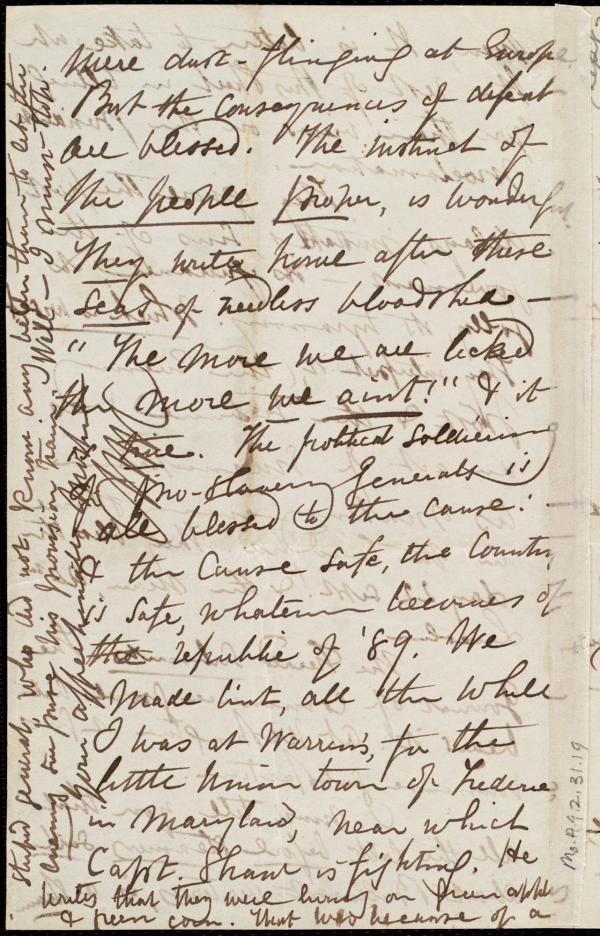 mere dust-flinging at Europe
But the consequences of defeat
are blessed. The instinct of
the people proper, is wonderful
They write home after these
seas of needless bloodshed -
" The more we are licked
the more we aint!" & it
true. The political soldiering
pro-slavery Generals is
all blessed to the cause!
& the Cause safe, the Country
is safe, whatever becomes of
the republic of '89. We
made lint, all the while
I was at Warren's, for the
little Union town of Frederic
in Maryland, near which
Capt. Shaw is fighting. He
writes that they were living on green apples
& green corn. That was because of a
stupid general who did not know any better than to let the
enemy sur his provision train. Well - I must stop.
Your affectionate
Ms.A.9.2.31.19